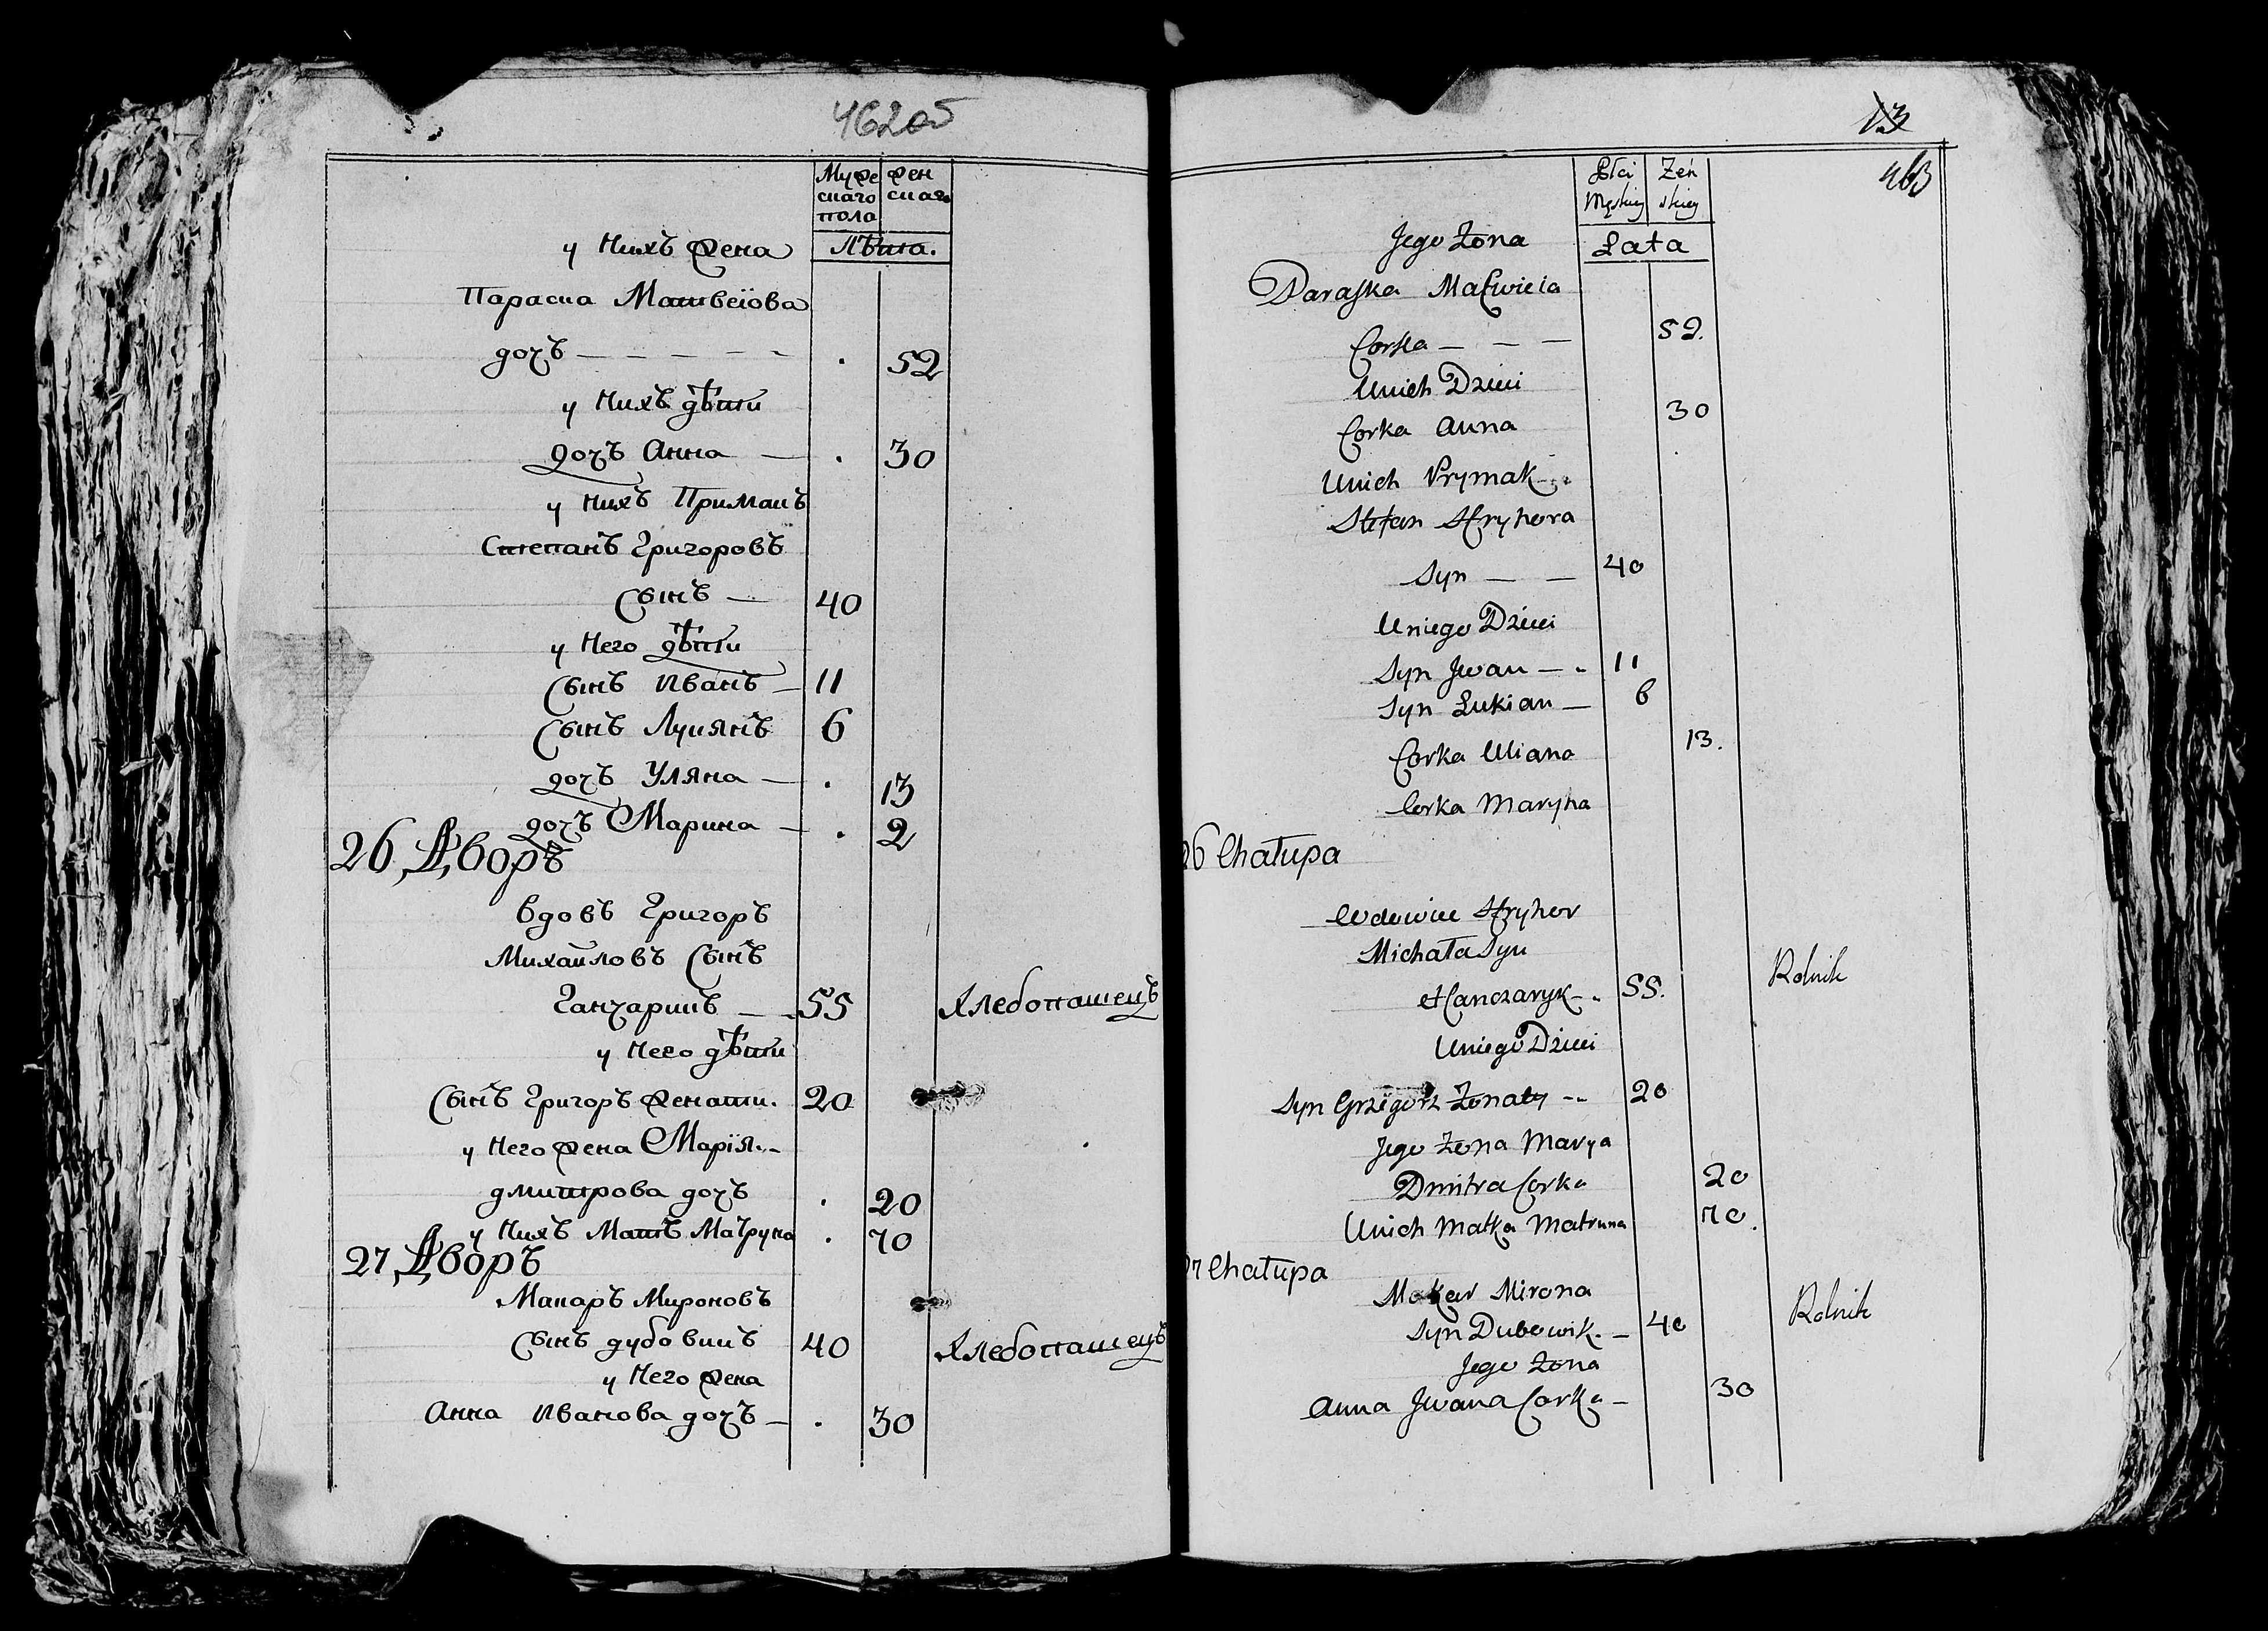 462об
Мужескаго пола
Женскаго
Лѣта.
у нихъ жена
Параска Матвеіова
дочъ — — — — — . 52
у нихъ дѣти
дочъ Анна — . 30
у нихъ Примакъ
Степанъ Григоровъ
Сынъ — 40
у него дѣти
Сынъ Иванъ — 11
Сынъ Лукянъ 6
дочъ Уляна — . 13
дочъ Марина — . 2
26 Дворъ
Вдовъ Григоръ
Михайловъ Сынъ
Ганчарикъ — 55 Хлебопашецъ
у него дѣти
Сынъ Григоръ женати. 20
у него жена Марія
дмитрова дочъ . 20
у нихъ Матъ Матруна . 70
27 Дворъ
Макаръ Мироновъ
Сынъ дубовикъ 40 Хлебопашецъ
у него жена
Анна Иванова дочъ — . 30
13
463
Płci Męskiey
Żeńskiey
Lata
Jego Żona
Paraska Matwieia
Corka — — — 52.
Unich Dzieci
Corka Anna 30
Unich Prymak
Stefan Hryhora
Syn — — 40
Uniego Dzieci
Syn Jwan — 11
Syn Łukian — 6
Corka Uliana 13.
Corka Maryna
26 Chałupa
Wdowiec Hryhor
Michała Syn
Hanczaryk 55. Rolnik
Uniego Dzieci
Syn Grzegorz Żonaty 20
Jego Żona Marya
Dmitra Corka 20
Unich Matka Matruna 70.
27 Chałupa
Makar Mirona
Syn Dubowik. — 40 Rolnik
Jego Żona
Anna Jwana Corka — 30